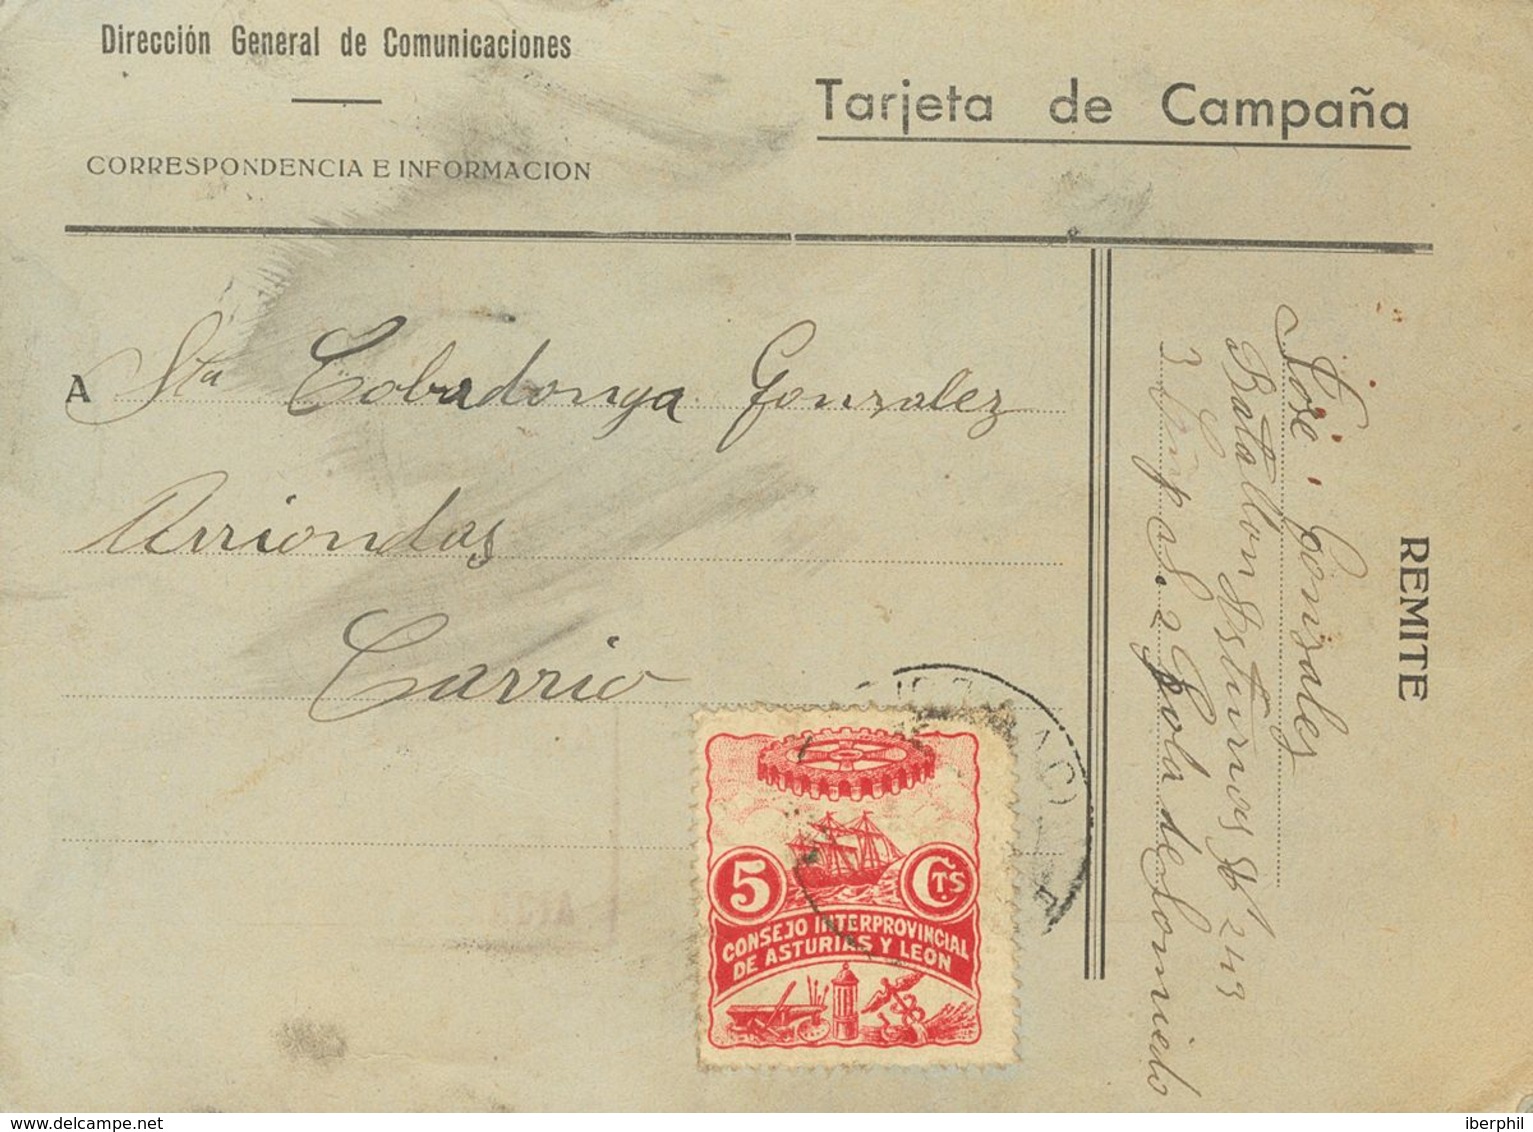 Dirección General de Comunicaciones
CORRESPONDENCIA E INFORMACION
Tarjeta de Campaña
A Sta Cobadonga Gonzalez
Arriondas
Carrio
REMITE
José Gonsales
Batallon Asturias Nº 243
3 Compas. 2 Pola de Somiedo
5 CTS
CONSEJO INTERPROVINCIAL
DE ASTURIAS Y LEON
delcampe.net
iberphil